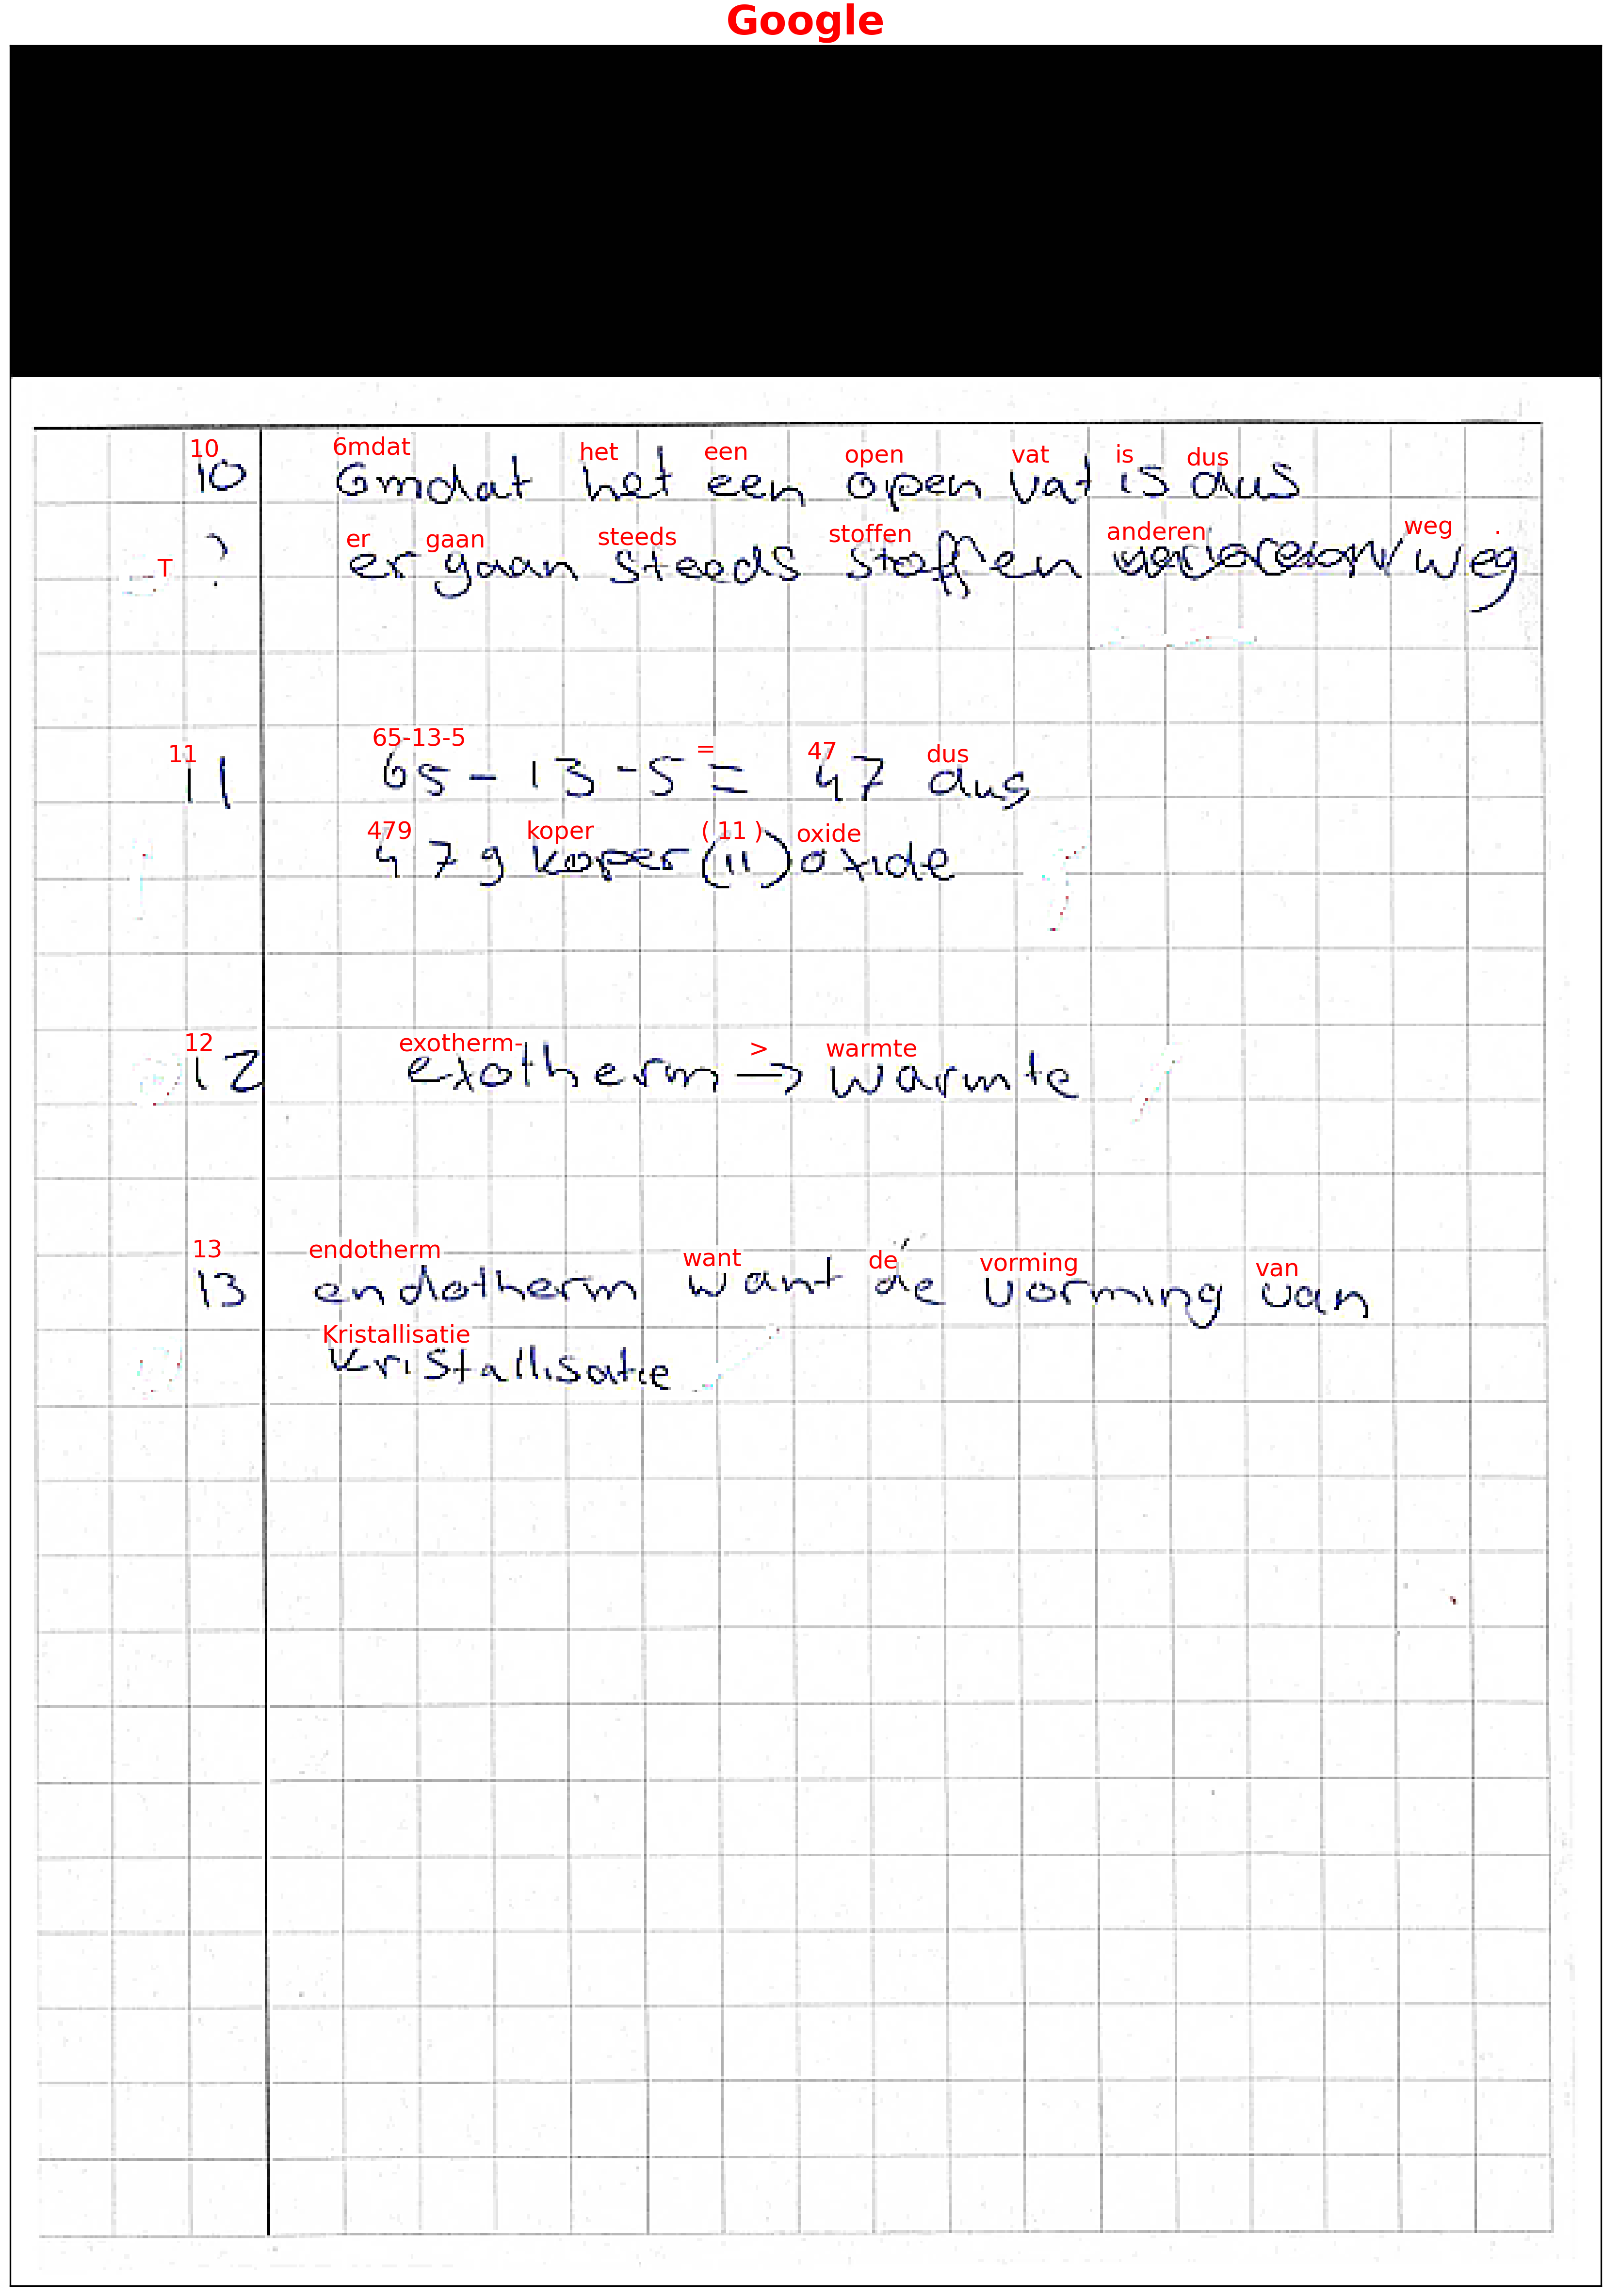 Google
10 6mdat het een open vat is dus
10 Omdat het een open vat is dus
T er gaan steeds stoffen anderen weg .
? er gaan steeds stoffen weg
11 65-13-5 = 47 dus
11 65 - 13 - 5 = 47 dus
479 koper ( 11 ) oxide
47g koper (II) oxide
12 exotherm- > warmte
12 exotherm → warmte
13 endotherm want de vorming van
13 endotherm want de vorming van
Kristallisatie
kristallisatie